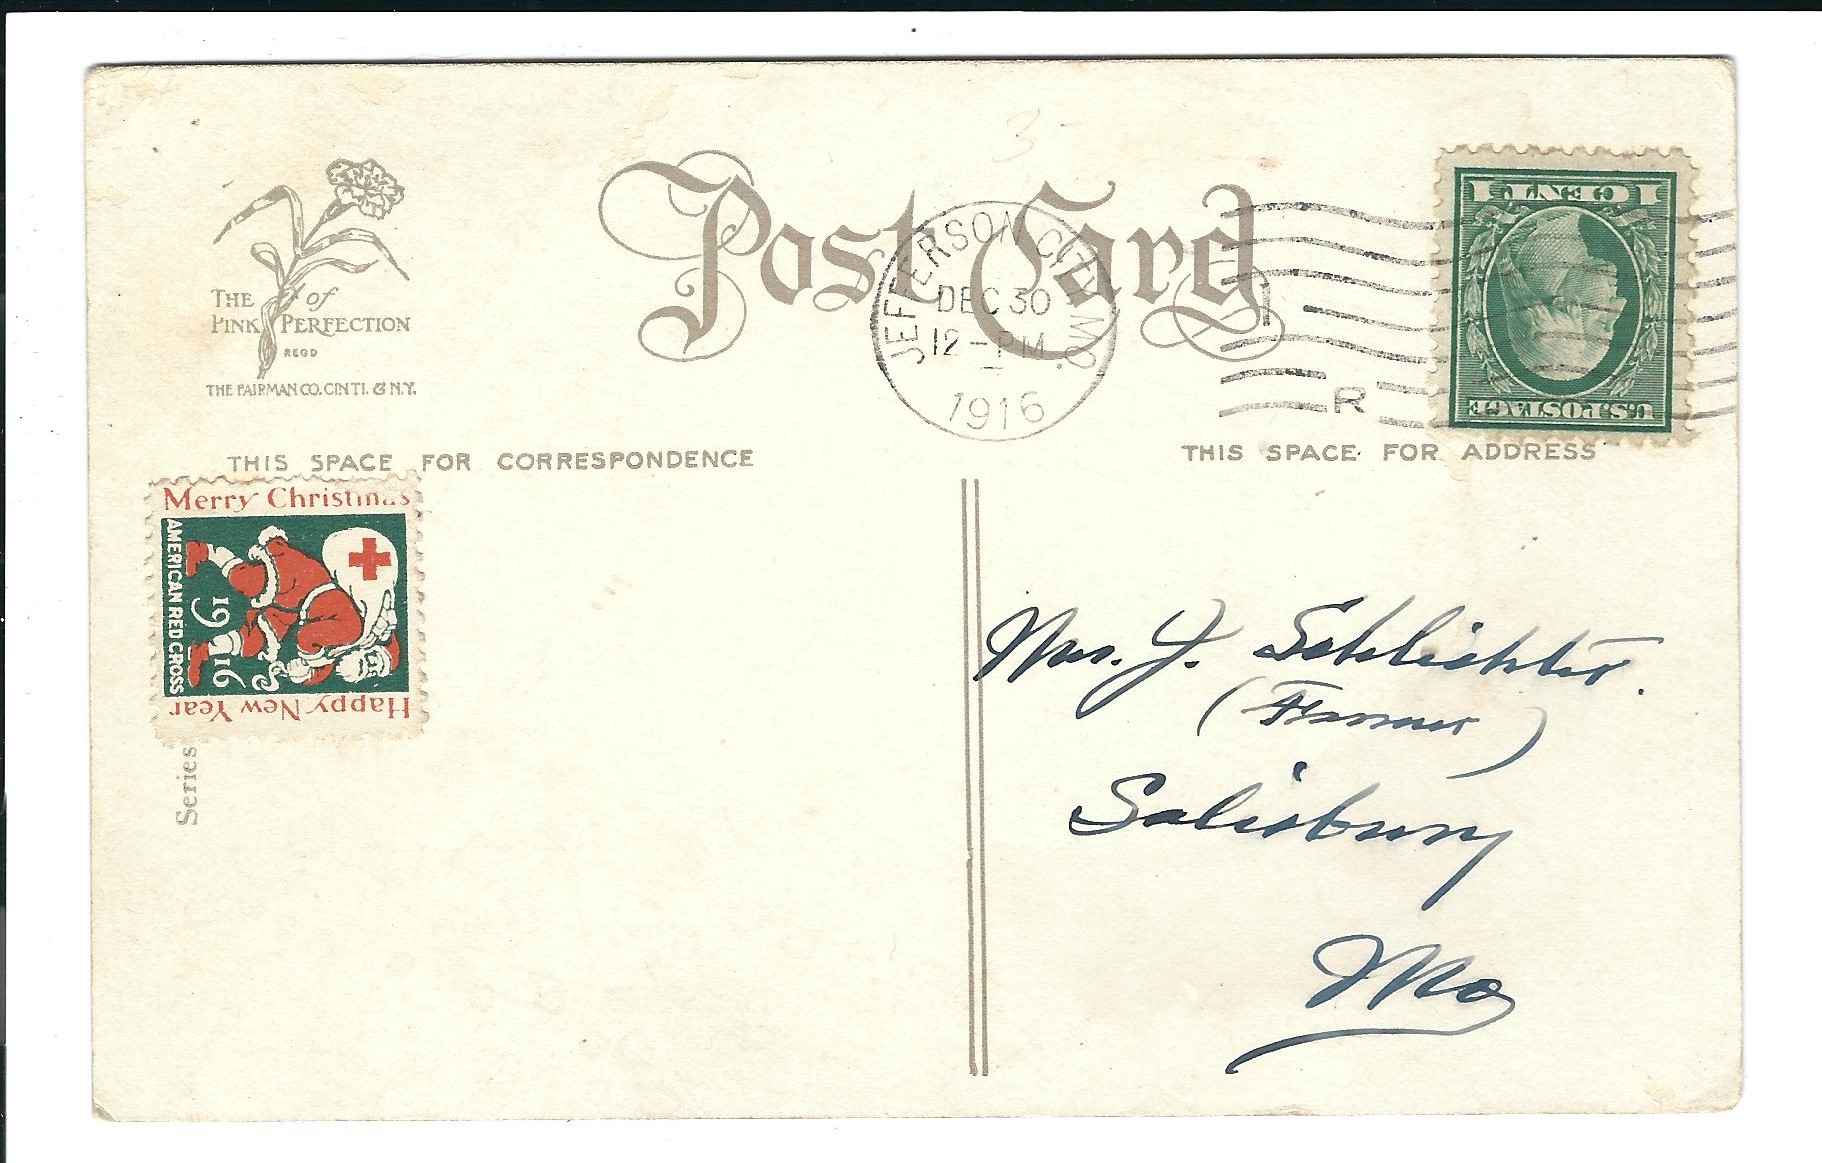 Post Card
3-
THE of
PINK PERFECTION
REGD
THE FAIRMAN CO. CINTI. & N.Y.
JEFFERSON CITY, MO.
DEC 30
12 - PM
1916
1
R
1 CENT 1
U.S. POSTAGE
THIS SPACE FOR CORRESPONDENCE
THIS SPACE FOR ADDRESS
Merry Christmas
AMERICAN RED CROSS
1916
Happy New Year
Series
Mrs. J. Schlichter.
(Farmer)
Salisbury
Mo